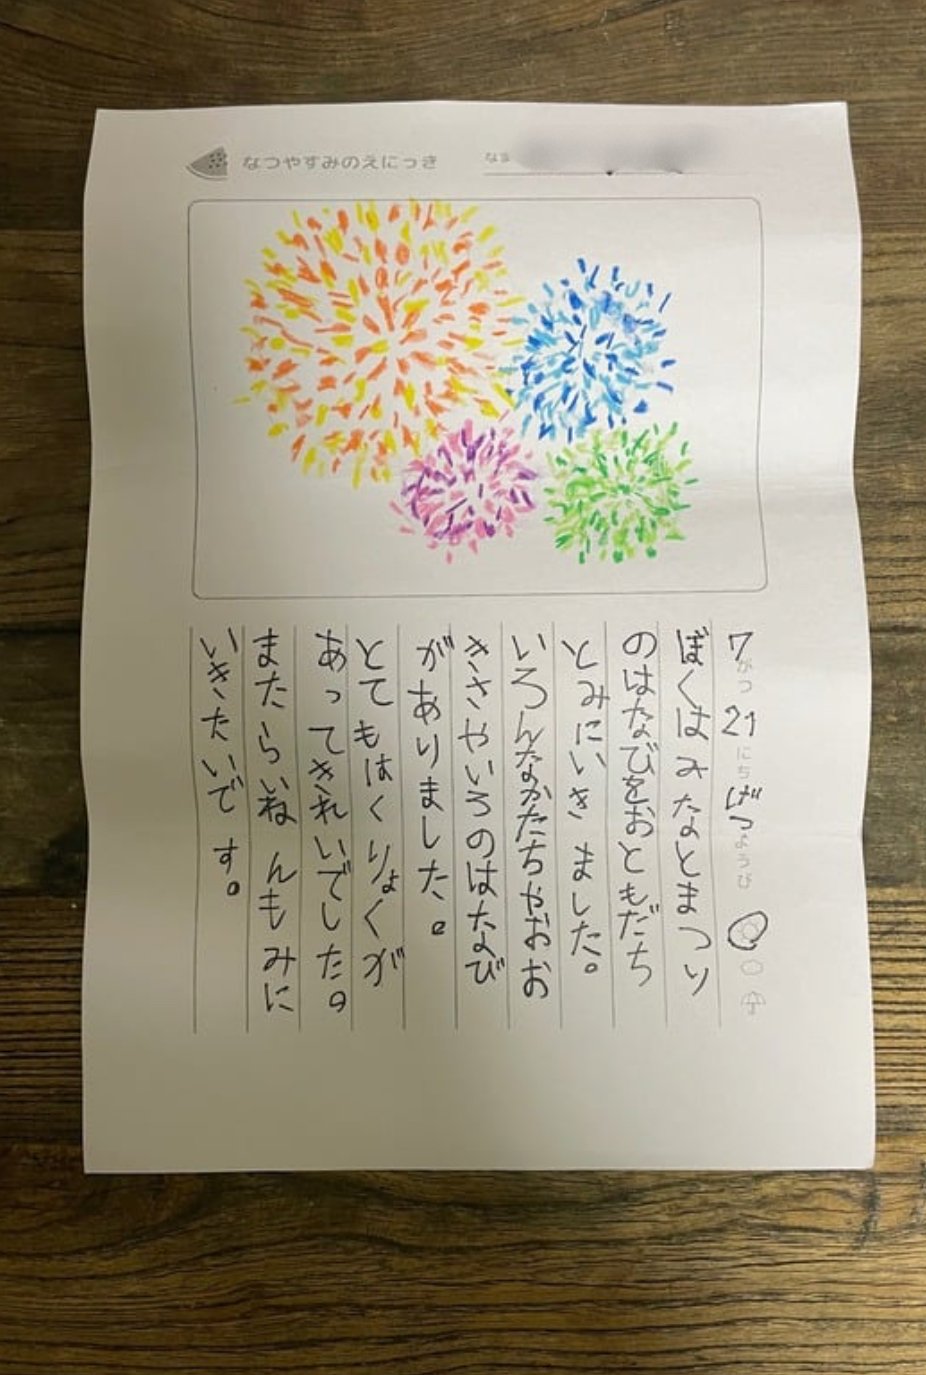 なつやすみのえにっき
なま
7がつ21にちげつようび
ぼくはみなとまつり
のはなびをおともだち
とみにいきました。
いろんなかたちやおお
きさやいろのはなび
がありました。
とてもはくりょくが
あってきれいでした。
またらいねんもみに
いきたいです。